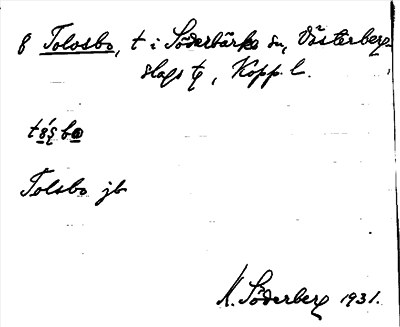 f Tolosbo, t i Söderbärke sn, Västerbergs-
slags tg, Kopp. l.
Tolsbo jb
K. Söderberg 1931.